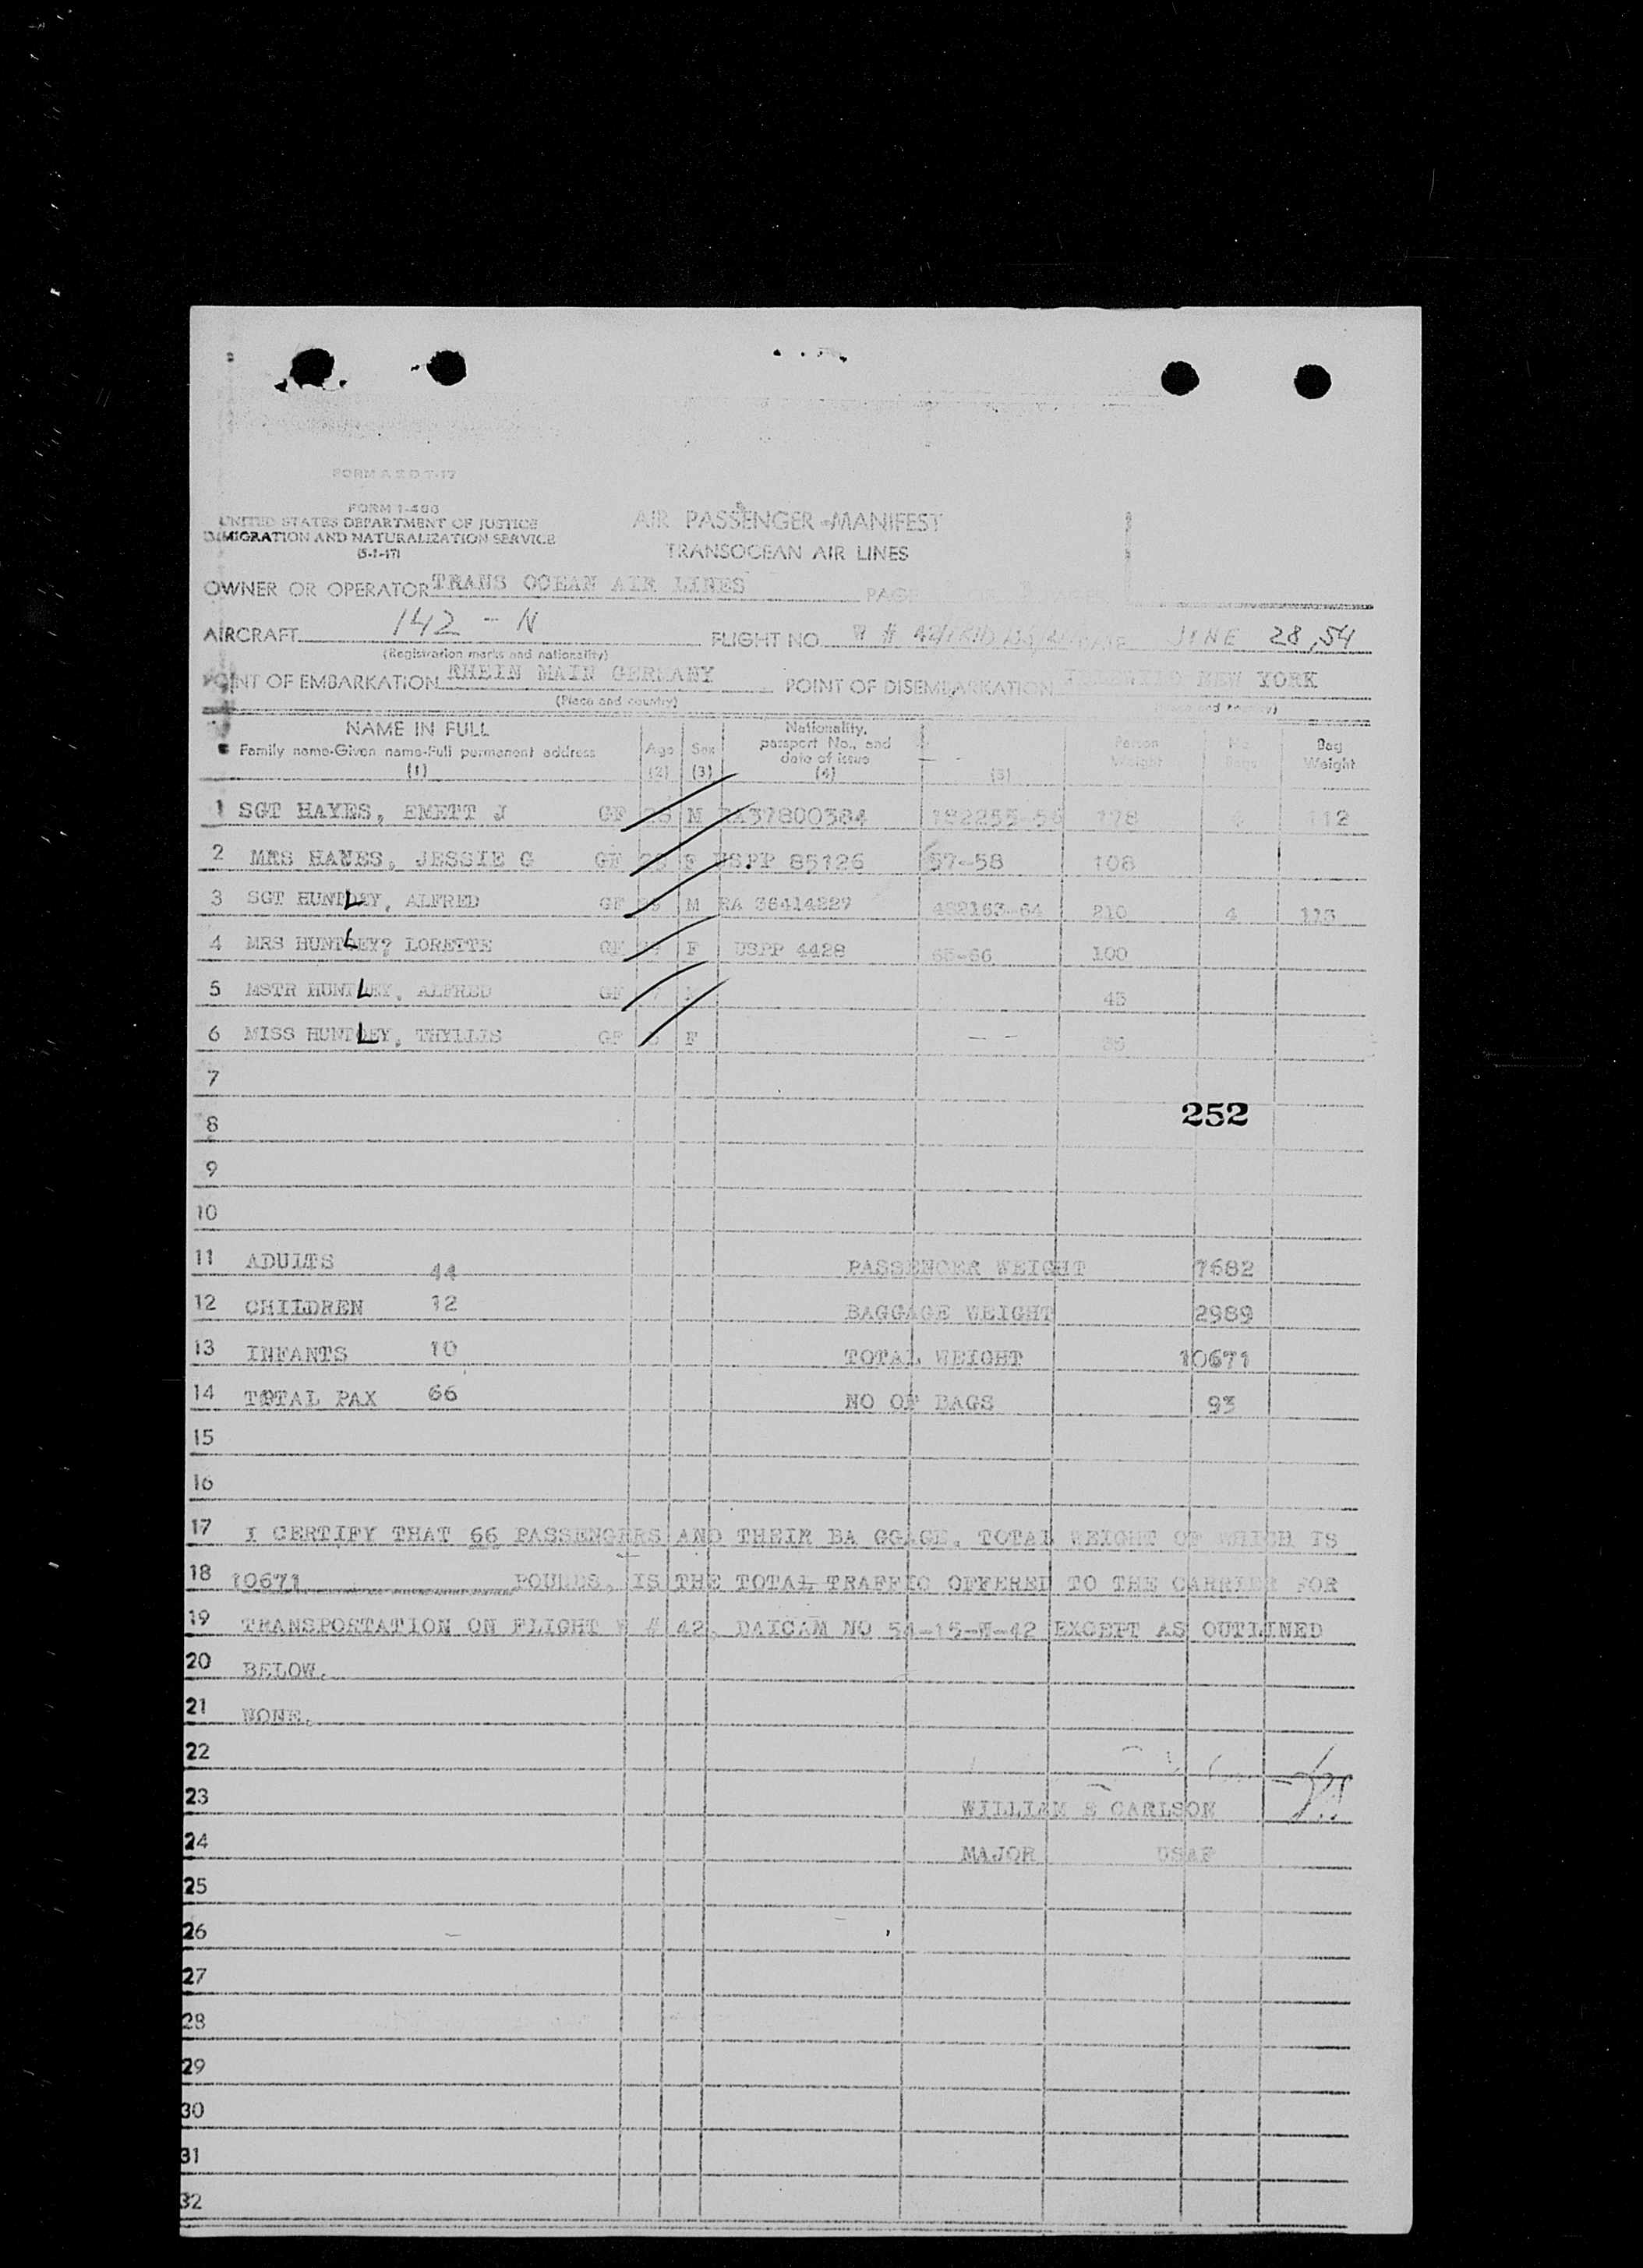 FORM A 2 D T-17
FORM I-466
UNITED STATES DEPARTMENT OF JUSTICE
IMMIGRATION AND NATURALIZATION SERVICE
(5-1-17)
AIR PASSENGER MANIFEST
TRANSOCEAN AIR LINES
OWNER OR OPERATOR TRANS OCEAN AIR LINES PAGE
AIRCRAFT 142 - N FLIGHT NO. W # 42 JUNE 28, 54
(Registration marks and nationality)
POINT OF EMBARKATION RHEIN MAIN GERMANY POINT OF DISEMBARKATION NEW YORK
(Place and country) (Place and country)
NAME IN FULL Age Sex Nationality, passport No., and date of issue Person Weight No. Bags Bag Weight
Family name-Given name-Full permanent address
(1) (2) (3) (4) (5)
1 SGT HAYES, EMETT J GF M RA37800384 182255-56 178 112
2 MRS HANES, JESSIE G GF F USPP 85126 57-58 108
3 SGT HUNTLEY, ALFRED GF M RA 38414229 482163-64 210 4 113
4 MRS HUNTLEY? LORETTE GF F USPP 4428 65-66 100
5 MSTR HUNTLEY, ALFRED GF 45
6 MISS HUNTLEY, THYLLIS GF F
7
252
8
9
10
11 ADULTS 44 PASSENGER WEIGHT 7682
12 CHILDREN 12 BAGGAGE WEIGHT 2989
13 INFANTS 10 TOTAL WEIGHT 10671
14 TOTAL PAX 66 NO OF BAGS 93
15
16
17 I CERTIFY THAT 66 PASSENGERS AND THEIR BA GGAGE, TOTAL WEIGHT OF WHICH IS
18 10671 POUNDS, IS THE TOTAL TRAFFIC OFFERED TO THE CARRIER FOR
19 TRANSPORTATION ON FLIGHT W # 42, DAICAM NO 54-15-W-42 EXCEPT AS OUTLINED
20 BELOW.
21 NONE.
22
23 WILLIAM E CARLSON
24 MAJOR USAF
25
26
27
28
29
30
31
32